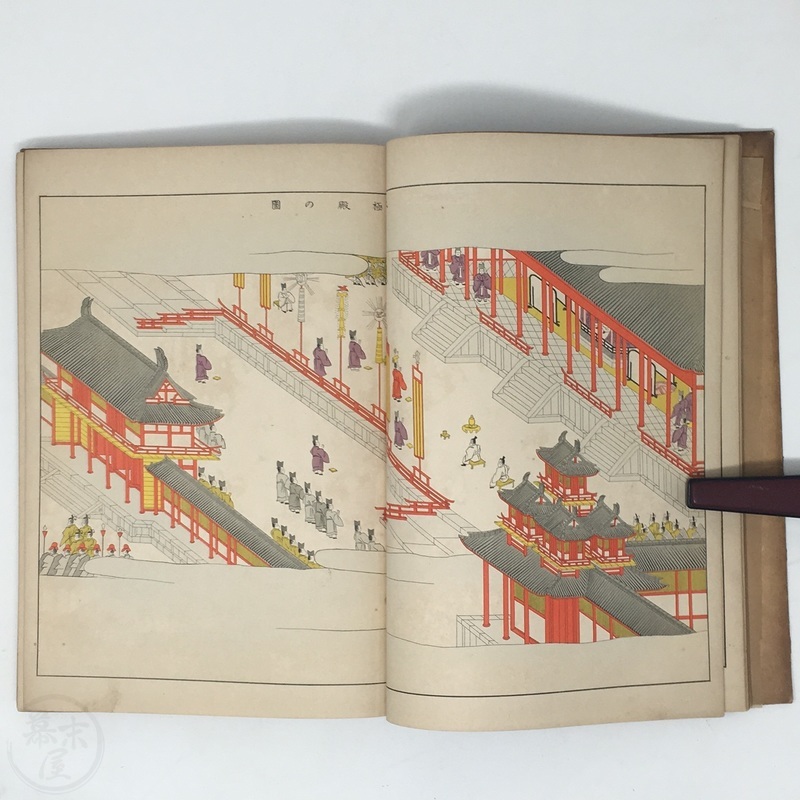 極殿の圖
幕末屋